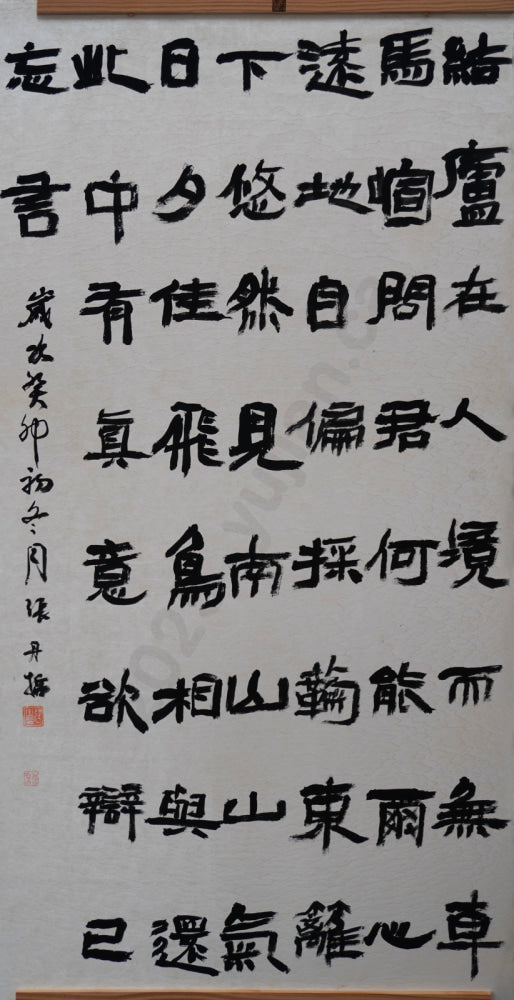 結廬在人境而無車
馬喧問君何能爾心
遠地自偏採蘜東籬
下悠然見南山山氣
日夕佳飛鳥相與還
此中有真意欲辯已
忘言
歲次癸卯初冬月張丹